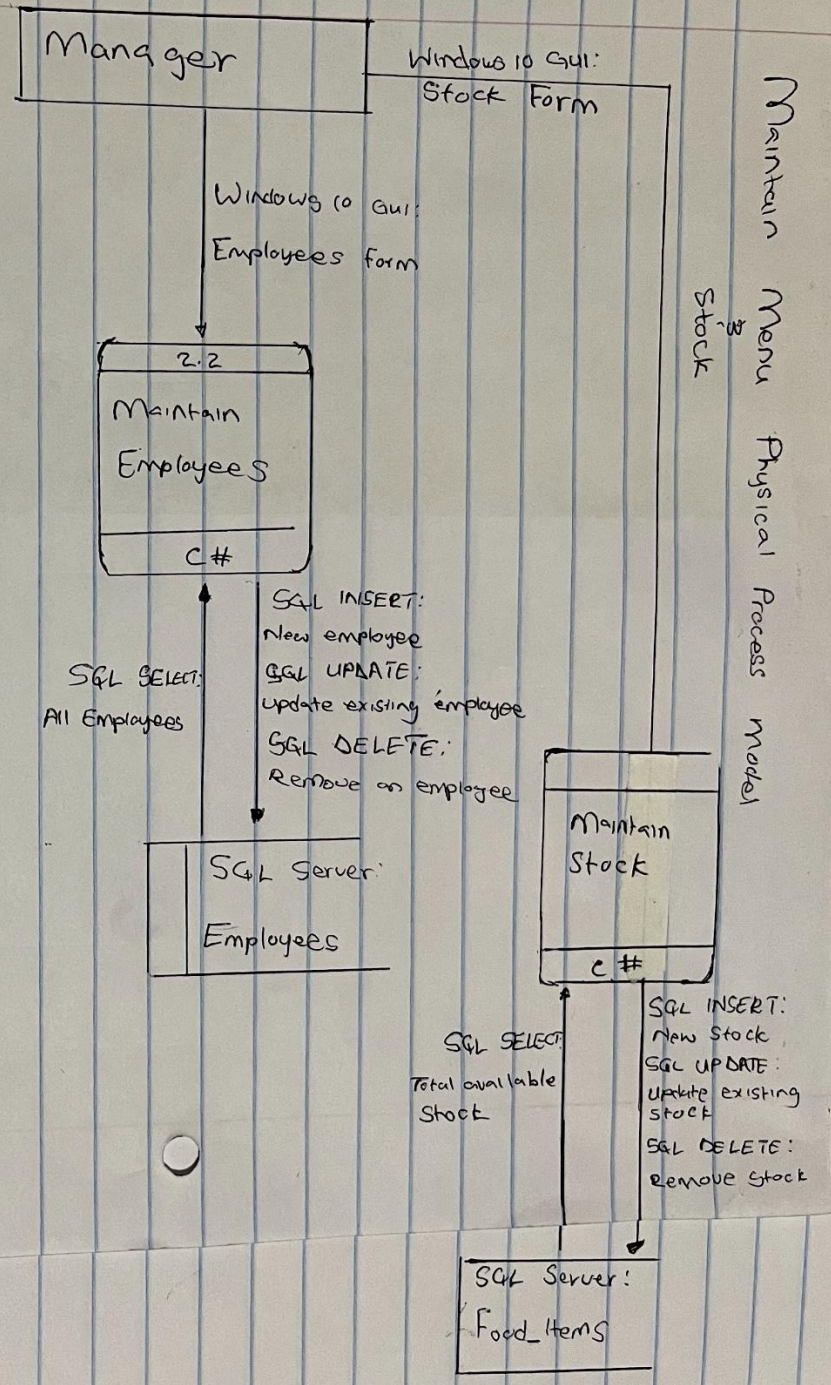 Manager
Windows 10 GUI:
Stock Form
Maintain Menu Physical Process Model
&
Stock
Windows 10 GUI:
Employees Form
2.2
Maintain
Employees
C#
SQL SELECT:
All Employees
SQL INSERT:
New employee
SQL UPDATE:
Update existing employee
SQL DELETE:
Remove an employee
SQL Server:
Employees
Maintain
Stock
C#
SQL SELECT
Total available
Stock
SQL INSERT:
New Stock
SQL UPDATE:
Update existing
stock
SQL DELETE:
Remove Stock
SQL Server:
Food_Items